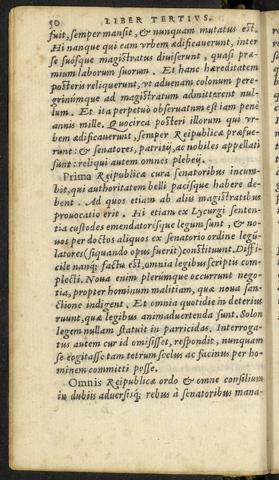 50 LIBER TERTIVS.
fuit, semper mansit, & nunquam mutatus est.
Hi nanque qui eam vrbem adificauerunt, inter
se suósque magistratus diuiserunt, quasi præ-
mium laborum suorum. Et hanc hæreditatem
posteris reliquerunt, vt aduenam colonum pere-
grinúmque ad magistratum admitterent nul-
lum. Et ita perpetuò obseruatum est iam pene
annis mille. Quocirca posteri illorum qui vr-
bem adificauerunt, semper Reipublicæ præfue-
runt: & senatores, patritij, ac nobiles appellati
sunt: reliqui autem omnes plebeij.
Prima Reipublicæ cura senatoribus incum-
bit, qui authoritatem belli pacisque habere de-
bent. Ad quos etiam ab aliis magistratibus
prouocatio erit. Hi etiam ex Lycurgi senten-
tia custodes emendatorésque legum sunt, & no-
uos per doctos aliquos ex senatorio ordine legú-
latores (siquando opus fuerit) constituunt. Diffi-
cile nanq; factu est, omnia legibus scriptis com-
plecti. Noua enim plerúmque occurrunt nego-
tia, propter hominum malitiam, quæ noua san-
ctione indigent. Et omnia quotidie in deterius
ruunt, quæ legibus animaduertenda sunt. Solon
legem nullam statuit in parricidas. Interroga-
tus autem cur id omisisset, respondit, nunquam
se cogitasse tam tetrum scelus ac facinus per ho-
minem committi posse.
Omnis Reipublicæ ordo & omne consilium
in dubiis aduersisq; rebus à senatoribus mana-